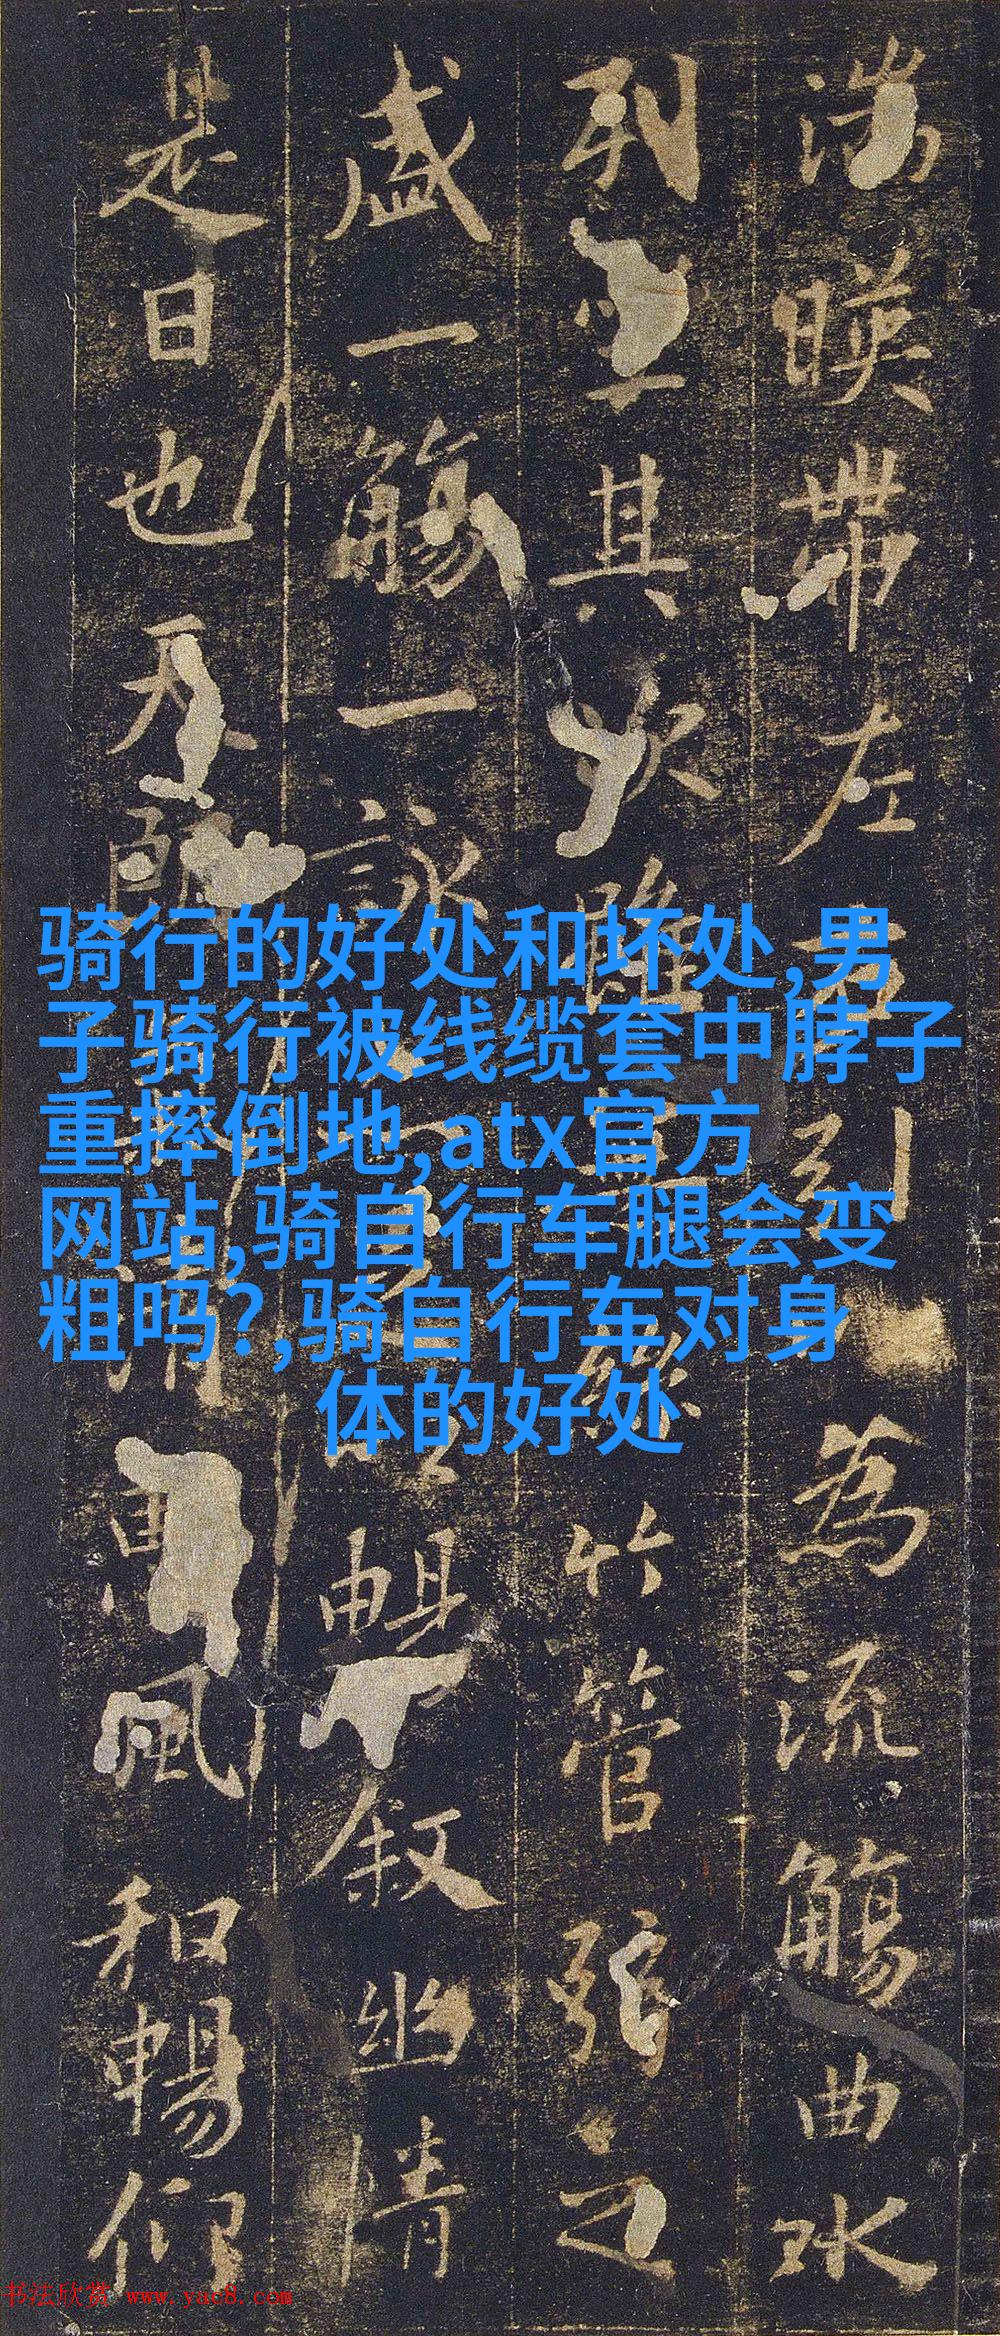 湍暎帶左右引為流觴曲水
列坐其次雖無絲竹管弦之
盛一觴一詠暢叙幽情
是日也天朗清惠風和暢仰
骑行的好处和坏处,男
子骑行被线缆套中脖子
重摔倒地,atx官方
网站,骑自行车腿会变
粗吗?,骑自行车对身
体的好处
书法欣赏 www.yac8.com